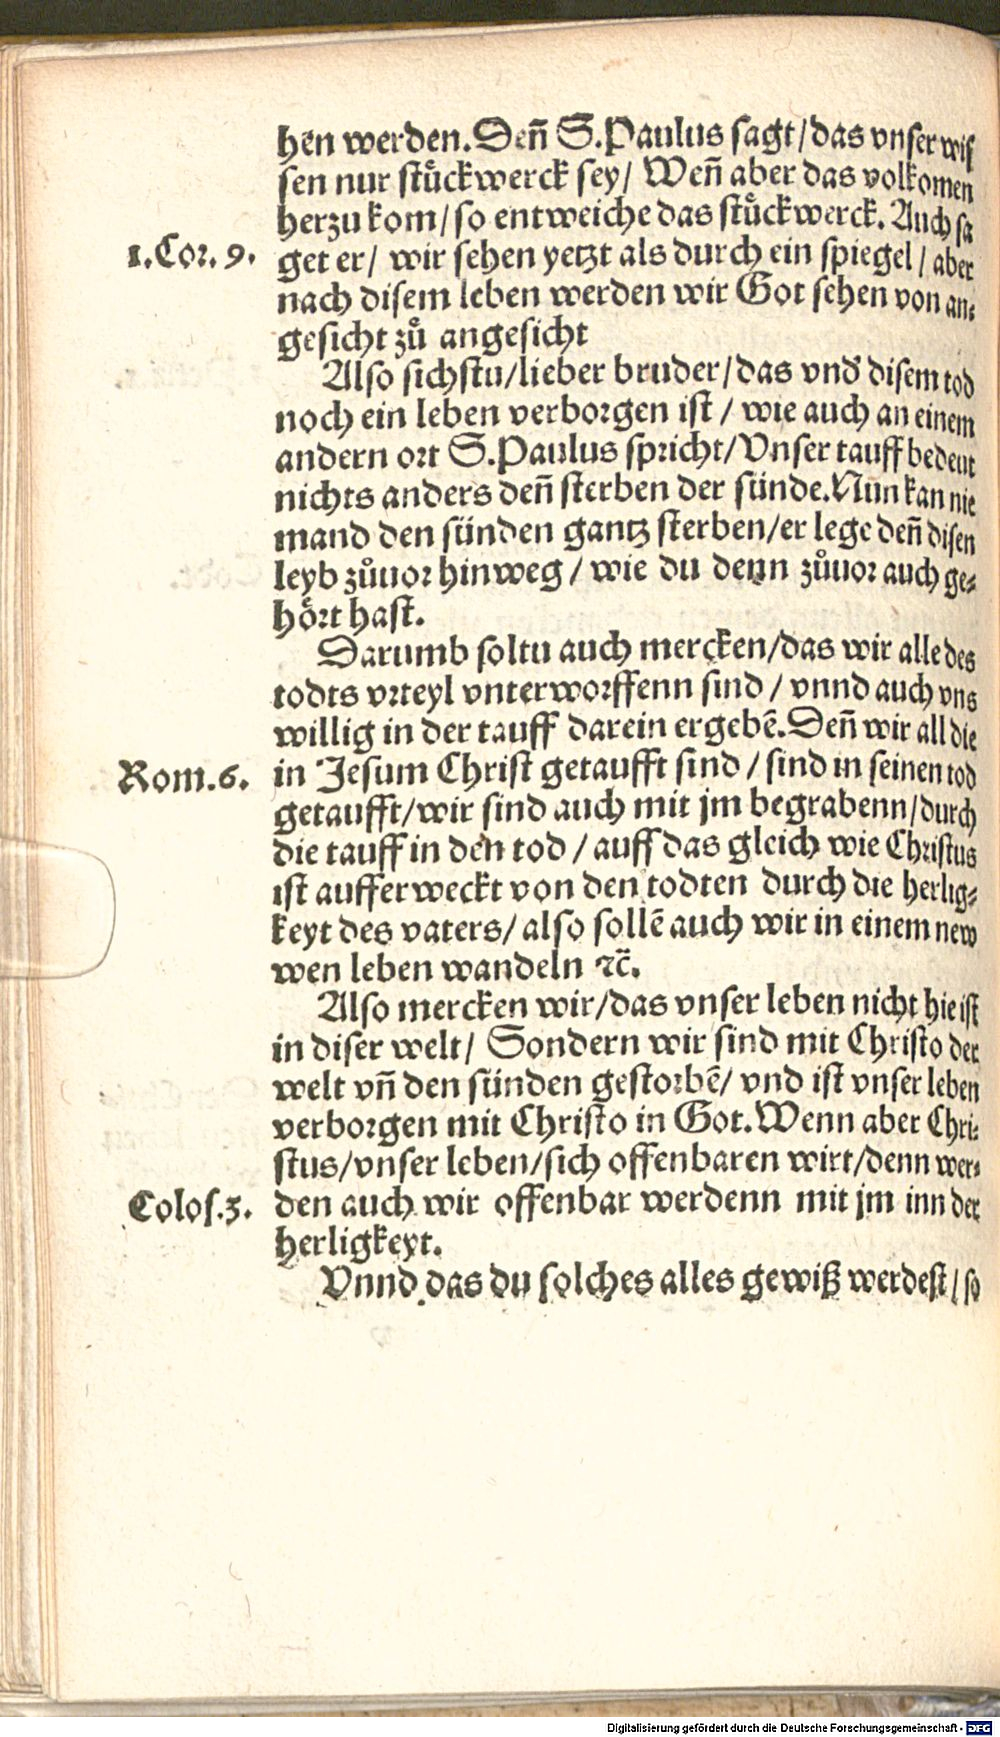 hen werden. Deñ S. Paulus sagt/das vnser wis
sen nur stůckwerck sey/ Weñ aber das volkomen
herzu kom/so entweiche das stůckwerck. Auch sa
1.Cor. 9. get er/ wir sehen yetzt als durch ein spiegel/ aber
nach disem leben werden wir Got sehen von an-
gesicht zů angesicht
Also sichstu/lieber bruder/das vnd̃ disem tod
noch ein leben verborgen ist / wie auch an einem
andern ort S. Paulus spricht/Vnser tauff bedeut
nichts anders deñ sterben der sünde. Nun kan nie
mand den sünden gantz sterben/er lege deñ disen
leyb zůuor hinweg / wie du denn zůuor auch ge-
hoͤrt hast.
Darumb soltu auch mercken/das wir alle des
todts vrteyl vnterworffenn sind / vnnd auch vns
willig in der tauff darein ergebẽ. Deñ wir all die
Rom. 6. in Jesum Christ getaufft sind / sind in seinen tod
getaufft/wir sind auch mit jm begrabenn/durch
die tauff in den tod / auff das gleich wie Christus
ist aufferweckt von den todten durch die herlig-
keyt des vaters/ also sollẽ auch wir in einem new
wen leben wandeln ⁊c̃.
Also mercken wir/das vnser leben nicht hie ist
in diser welt/ Sondern wir sind mit Christo der
welt vñ den sünden gestorbẽ/ vnd ist vnser leben
verborgen mit Christo in Got. Wenn aber Chri-
stus/vnser leben/sich offenbaren wirt/denn wer-
Colos. 3. den auch wir offenbar werdenn mit jm inn der
herligkeyt.
Vnnd das du solches alles gewiß werdest/ so
Digitalisierung gefördert durch die Deutsche Forschungsgemeinschaft - DFG